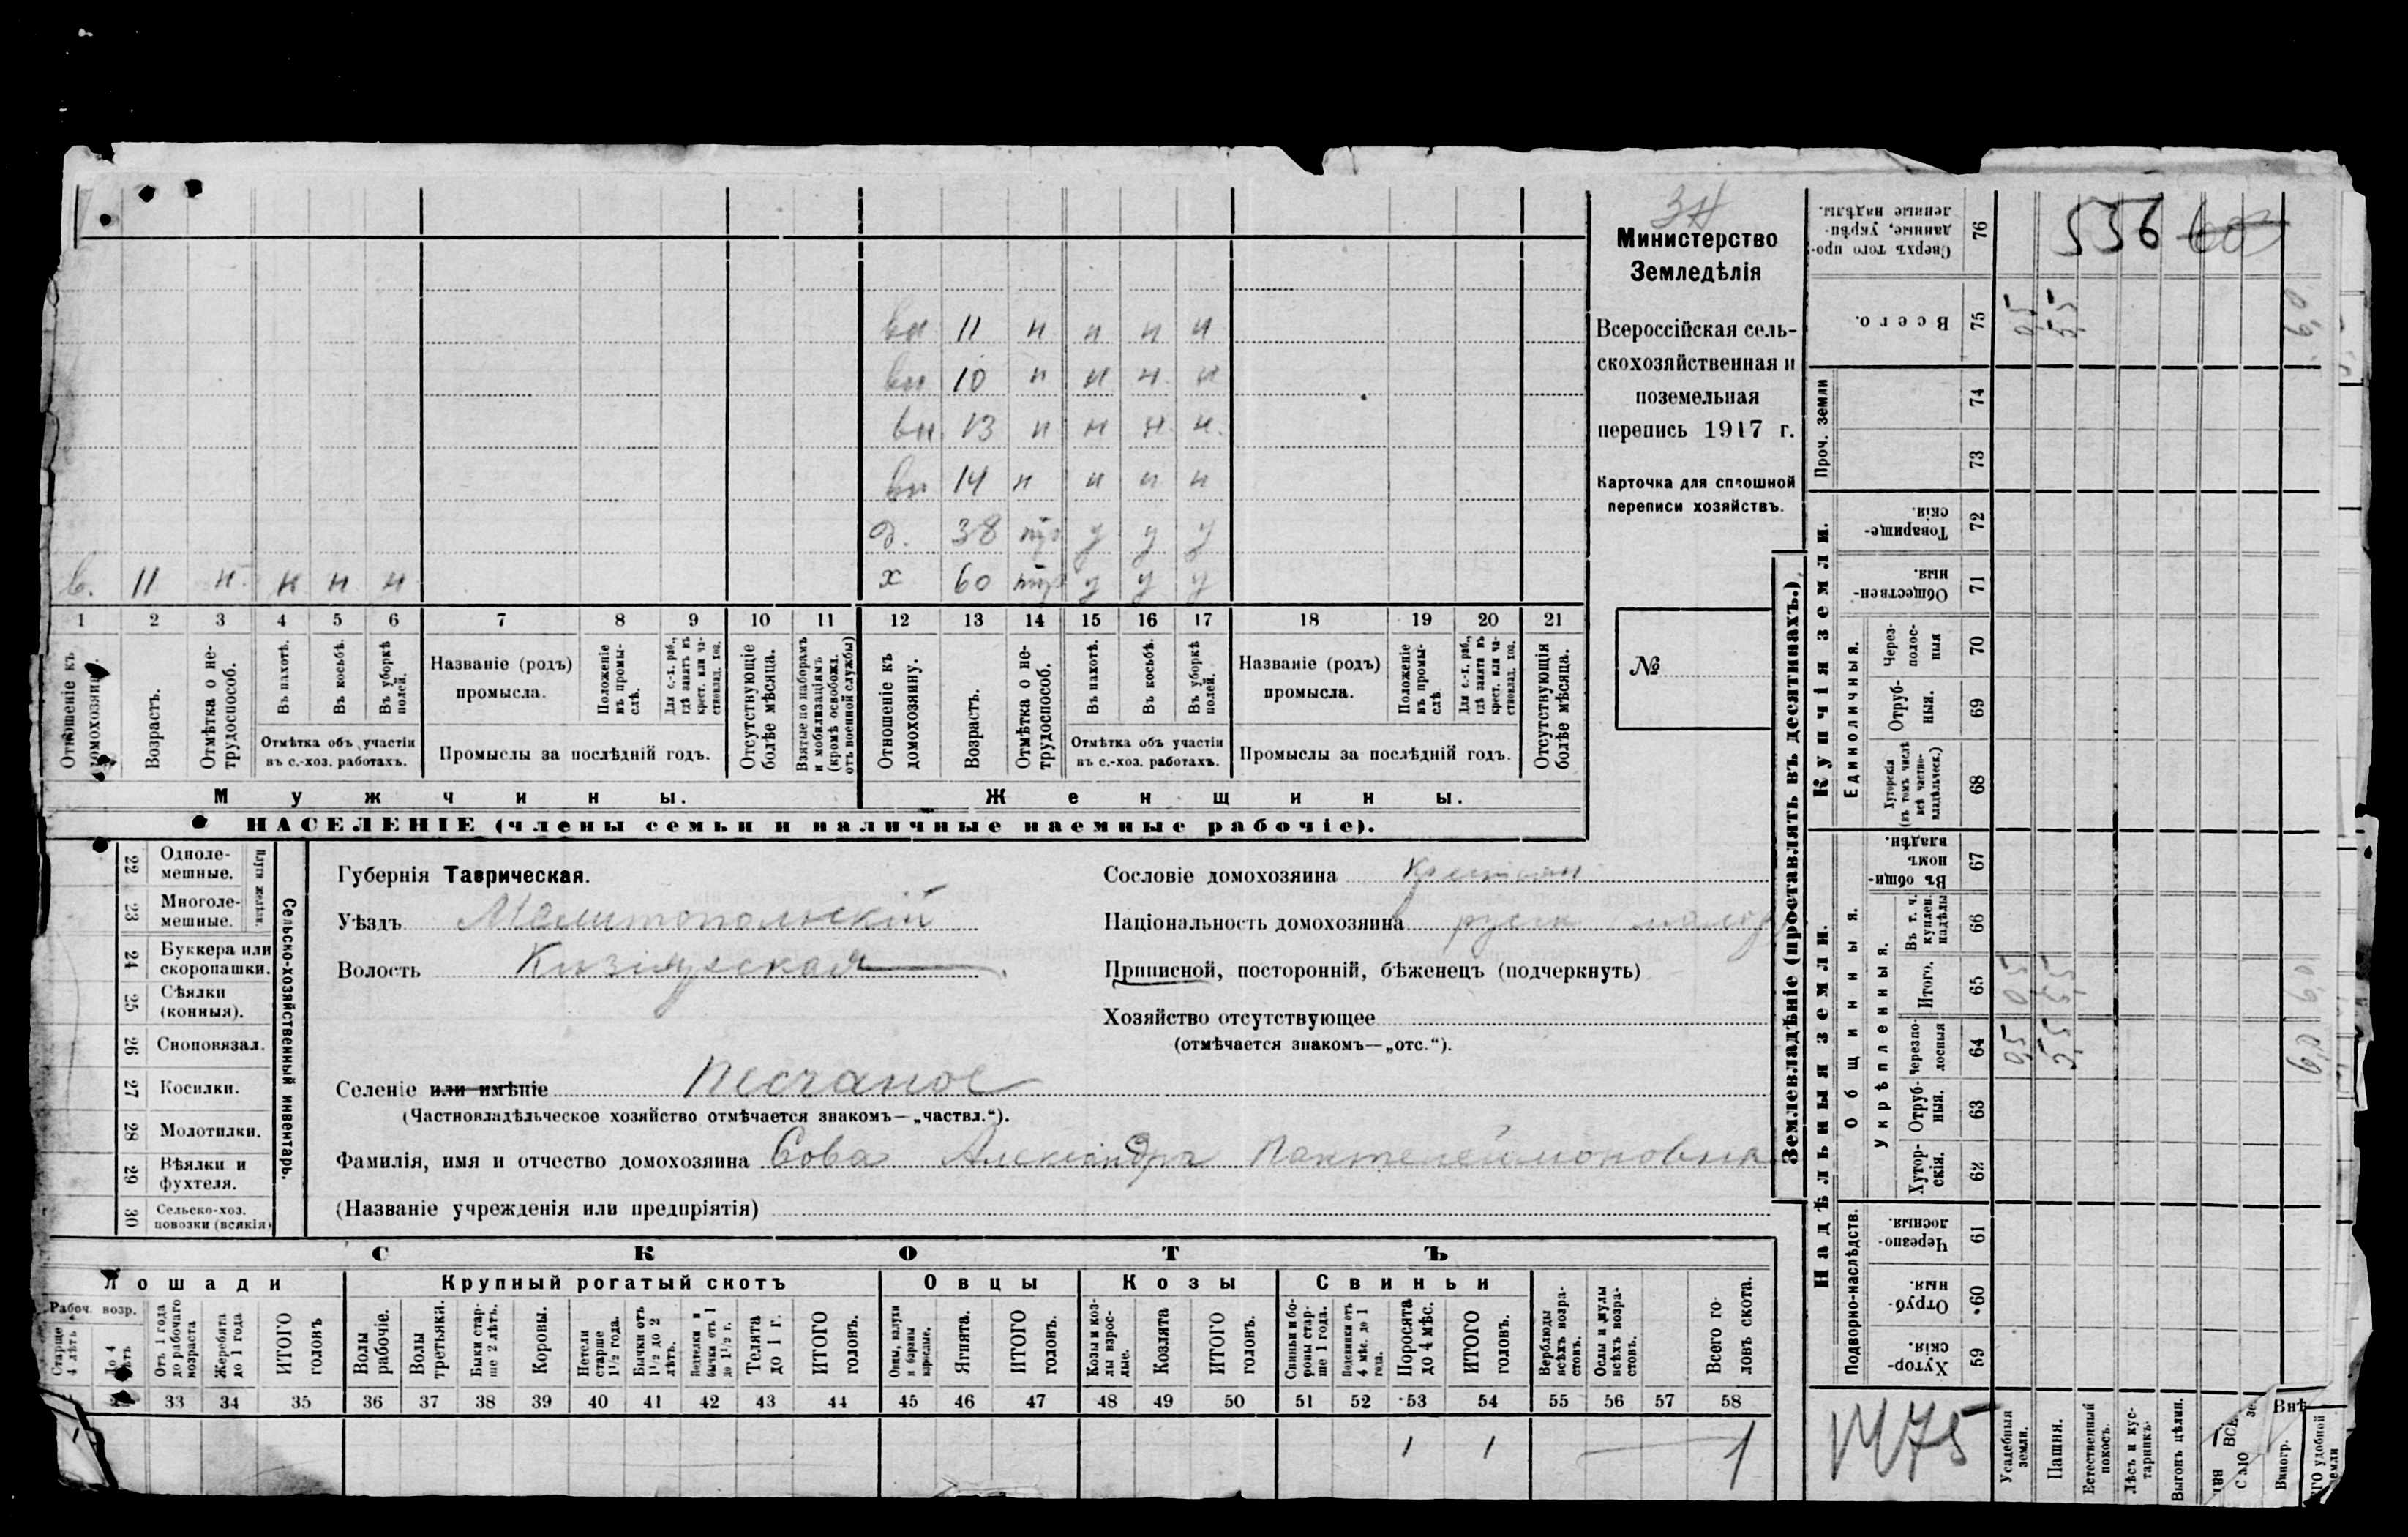 вн 11 н н н н
вн 10 н н н н
вн. 13 н н н н.
вн 14 н н н н
д. 38 тр у у у
в. 11 н. н н н х 60 тр у у у
1 2 3 4 5 6 7 8 9 10 11 12 13 14 15 16 17 18 19 20 21
Отношеніе къ домохозяину.
Возрастъ.
Отмѣтка о нетрудоспособ.
Въ пахотѣ.
Въ косьбѣ.
Въ уборкѣ полей.
Отмѣтка объ участіи
въ с.-хоз. работахъ.
Названіе (родъ)
промысла.
Положеніе въ промыслѣ.
Для с.-х. раб., гдѣ занятъ въ крест. или частновлад. хоз.
Промыслы за послѣдній годъ.
Отсутствующіе болѣе мѣсяца.
Взятые по наборамъ и мобилизаціямъ (кромѣ освобожд. отъ военной службы)
Отношеніе къ домохозяину.
Возрастъ.
Отмѣтка о нетрудоспособ.
Въ пахотѣ.
Въ косьбѣ.
Въ уборкѣ полей.
Отмѣтка объ участіи
въ с.-хоз. работахъ.
Названіе (родъ)
промысла.
Положеніе въ промыслѣ.
Для с.-х. раб., гдѣ занята въ крест. или частновлад. хоз.
Промыслы за послѣдній годъ.
Отсутствующія болѣе мѣсяца.
Мужчины. Женщины.
НАСЕЛЕНІЕ (члены семьи и наличные наемные рабочіе).
Министерство
Земледѣлія
Всероссійская сель-
скохозяйственная и
поземельная
перепись 1917 г.
Карточка для сплошной
переписи хозяйствъ.
№
22 Одноле-
мешные.
23 Многоле-
мешные.
24 Буккера или
скоропашки.
25 Сѣялки
(конныя).
26 Сноповязал.
27 Косилки.
28 Молотилки.
29 Вѣялки и
фухтеля.
30 Сельско-хоз.
повозки (всякія)
Сельско-хозяйственный инвентарь.
Губернія Таврическая.
Уѣздъ Мелитопольскій
Волость Кизіярская
Селеніе или имѣніе Песчаное
(Частновладѣльческое хозяйство отмѣчается знакомъ—„частвл.“).
Фамилія, имя и отчество домохозяина Сова Александра Пантелеймоновна
(Названіе учрежденія или предпріятія)
Сословіе домохозяина Крестьян
Національность домохозяина русск малор
Приписной, посторонній, бѣженецъ (подчеркнуть)
Хозяйство отсутствующее
(отмѣчается знакомъ—„отс.“).
СКОТЪ
Лошади Крупный рогатый скотъ Овцы Козы Свиньи
Рабоч. возр.
Старше 4 лѣтъ
До 4 лѣтъ
Отъ 1 года до рабочаго возраста
Жеребята до 1 года
ИТОГО головъ
Волы рабочіе.
Волы третьяки.
Быки старше 2 лѣтъ.
Коровы.
Нетели старше 1½ года.
Бычки отъ 1½ до 2 лѣтъ.
Телята до 1 г.
ИТОГО головъ.
Овцы, валухи и бараны взрослые.
Ягнята.
ИТОГО головъ.
Козы и козлы взрослые.
Козлята
ИТОГО головъ.
Свиньи и боровы старше 1 года.
Подсвинки отъ 4 мѣс. до 1 года.
Поросята до 4 мѣс.
ИТОГО головъ.
Верблюды всѣхъ возрастовъ.
Ослы и мулы всѣхъ возрастовъ.
Всего головъ скота.
33 34 35 36 37 38 39 40 41 42 43 44 45 46 47 48 49 50 51 52 53 54 55 56 57 58
1 1 1
Землевладѣніе (проставлять въ десятинахъ.)
Надѣльныя земли. Купчія земли.
Подворно-наслѣдств. Общинныя. Укрѣпленныя. Единоличныя. Проч. земли
Сверхъ того проданные, укрѣпленные надѣлы. 76
Всего. 75 0,5 5,5
74
73
Товарищескія. 72
Общественныя. 71
Черезполосныя 70
Отрубныя. 69
Хуторскія (въ томъ числѣ всѣ частновладѣльческ.) 68
Въ общинномъ владѣн. 67
Въ т. ч. куплен. надѣлы 66
Итого. 65 0,5 5,5
Черезполосныя 64 0,5 5,5
Отрубныя. 63
Хуторскія. 62
Черезполосныя. 61
Отрубныя. 60
Хуторскія. 59
536 60
1475
Усадебныя земли.
Пашня.
Естественный покосъ.
Лѣсъ и кустарникъ.
Выгонъ цѣлин.
Виногр.